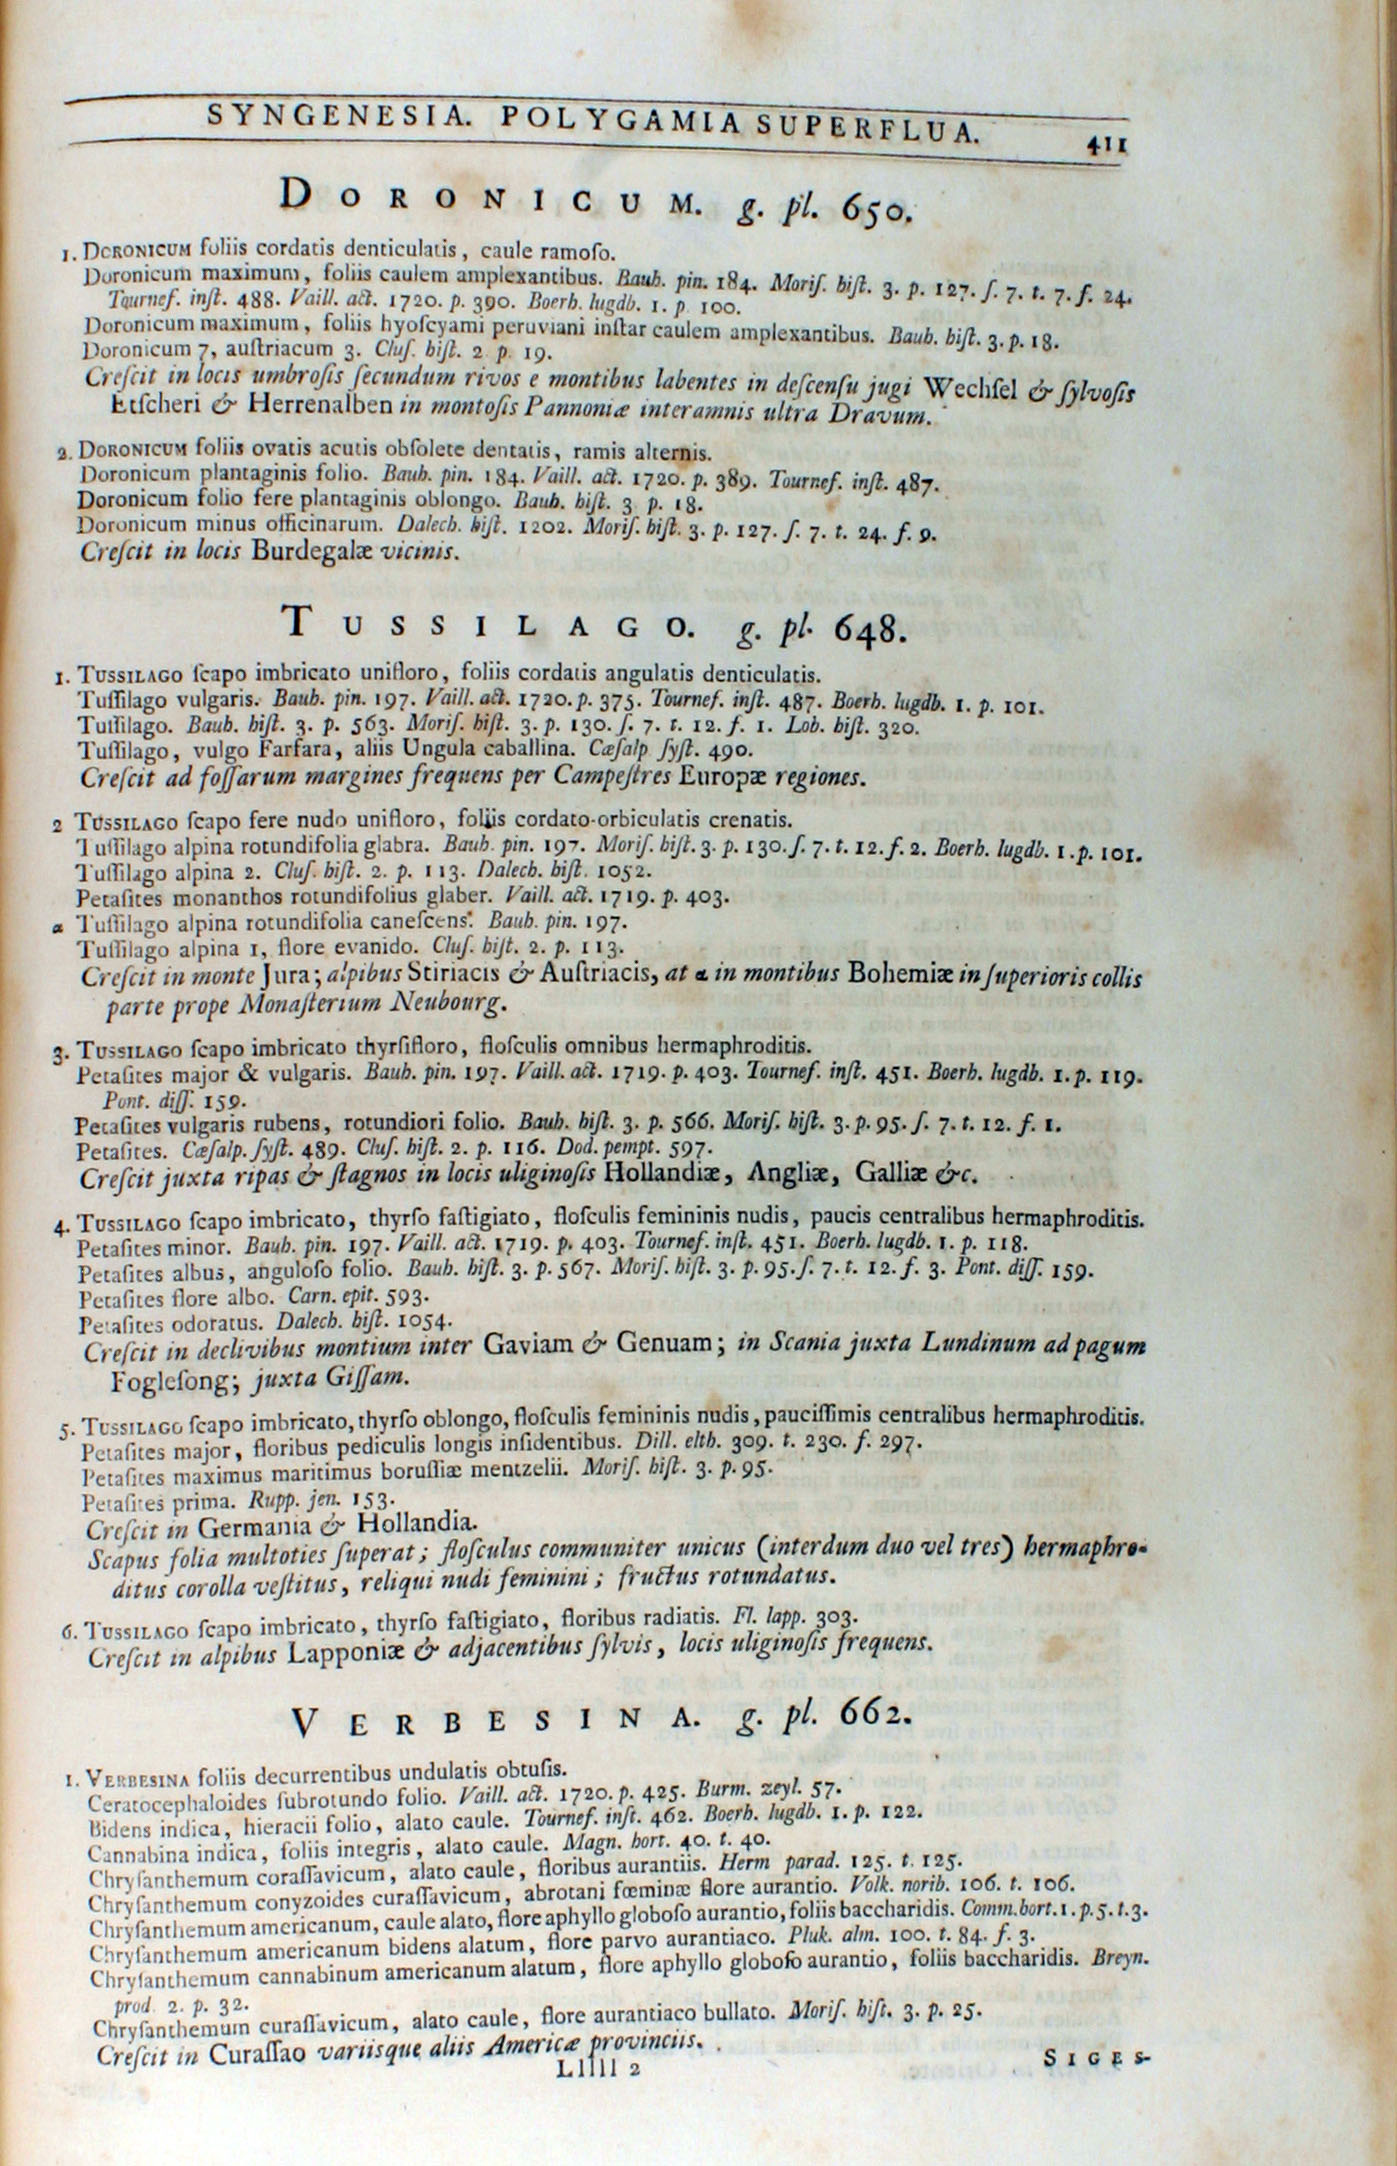 SYNGENESIA. POLYGAMIA SUPERFLUA. 411
DORONICUM. g. pl. 650.
1. DORONICUM foliis cordatis denticulatis, caule ramoſo.
Doronicum maximum, foliis caulem amplexantibus. Bauh. pin. 184. Moriſ. hiſt. 3. p. 127. ſ. 7. t. 7. f. 24.
Tournef. inſt. 488. Vaill. act. 1720. p. 390. Boerh. lugdb. 1. p 100.
Doronicum maximum, foliis hyoſcyami peruviani inſtar caulem amplexantibus. Bauh. hiſt. 3. p. 18.
Doronicum 7, auſtriacum 3. Cluſ. hiſt. 2 p. 19.
Creſcit in locis umbroſis ſecundum rivos e montibus labentes in deſcenſu jugi Wechſel & ſylvoſis
Etſcheri & Herrenalben in montoſis Pannoniæ interamnis ultra Dravum.
2. DORONICUM foliis ovatis acutis obſolete dentatis, ramis alternis.
Doronicum plantaginis folio. Bauh. pin. 184. Vaill. act. 1720. p. 389. Tournef. inſt. 487.
Doronicum folio fere plantaginis oblongo. Bauh. hiſt. 3 p. 18.
Doronicum minus officinarum. Dalech. hiſt. 1202. Moriſ. hiſt. 3. p. 127. ſ. 7. t. 24. f. 9.
Creſcit in locis Burdegalæ vicinis.
TUSSILAGO. g. pl. 648.
1. TUSSILAGO ſcapo imbricato unifloro, foliis cordatis angulatis denticulatis.
Tuſſilago vulgaris. Bauh. pin. 197. Vaill. act. 1720. p. 375. Tournef. inſt. 487. Boerh. lugdb. 1. p. 101.
Tuſſilago. Bauh. hiſt. 3. p. 563. Moriſ. hiſt. 3. p. 130. ſ. 7. t. 12. f. 1. Lob. hiſt. 320.
Tuſſilago, vulgo Farfara, aliis Ungula caballina. Cæſalp ſyſt. 490.
Creſcit ad foſſarum margines frequens per Campeſtres Europæ regiones.
2 TUSSILAGO ſcapo fere nudo unifloro, foliis cordato-orbiculatis crenatis.
Tuſſilago alpina rotundifolia glabra. Bauh. pin. 197. Moriſ. hiſt. 3. p. 130. ſ. 7. t. 12. f. 2. Boerh. lugdb. 1. p. 101.
Tuſſilago alpina 2. Cluſ. hiſt. 2. p. 113. Dalech. hiſt. 1052.
Petaſites monanthos rotundifolius glaber. Vaill. act. 1719. p. 403.
α Tuſſilago alpina rotundifolia caneſcens. Bauh. pin. 197.
Tuſſilago alpina 1, flore evanido. Cluſ. hiſt. 2. p. 113.
Creſcit in monte Jura; alpibus Stiriacis & Auſtriacis, at α in montibus Bohemiæ in ſuperioris collis
parte prope Monaſterium Neubourg.
3. TUSSILAGO ſcapo imbricato thyrſifloro, floſculis omnibus hermaphroditis.
Petaſites major & vulgaris. Bauh. pin. 197. Vaill. act. 1719. p. 403. Tournef. inſt. 451. Boerh. lugdb. 1. p. 119.
Pont. diſſ. 159.
Petaſites vulgaris rubens, rotundiori folio. Bauh. hiſt. 3. p. 566. Moriſ. hiſt. 3. p. 95. ſ. 7. t. 12. f. 1.
Petaſites. Cæſalp. ſyſt. 489. Cluſ. hiſt. 2. p. 116. Dod. pempt. 597.
Creſcit juxta ripas & ſtagnos in locis uliginoſis Hollandiæ, Angliæ, Galliæ &c.
4. TUSSILAGO ſcapo imbricato, thyrſo faſtigiato, floſculis femininis nudis, paucis centralibus hermaphroditis.
Petaſites minor. Bauh. pin. 197. Vaill. act. 1719. p. 403. Tournef. inſt. 451. Boerh. lugdb. 1. p. 118.
Petaſites albus, anguloſo folio. Bauh. hiſt. 3. p. 567. Moriſ. hiſt. 3. p. 95. ſ. 7. t. 12. f. 3. Pont. diſſ. 159.
Petaſites flore albo. Carn. epit. 593.
Petaſites odoratus. Dalech. hiſt. 1054.
Creſcit in declivibus montium inter Gaviam & Genuam; in Scania juxta Lundinum ad pagum
Fogleſong; juxta Giſſam.
5. TUSSILAGO ſcapo imbricato, thyrſo oblongo, floſculis femininis nudis, pauciſſimis centralibus hermaphroditis.
Petaſites major, floribus pediculis longis inſidentibus. Dill. elth. 309. t. 230. f. 297.
Petaſites maximus maritimus boruſſiæ mentzelii. Moriſ. hiſt. 3. p. 95.
Petaſites prima. Rupp. jen. 153.
Creſcit in Germania & Hollandia.
Scapus folia multoties ſuperat; floſculus communiter unicus (interdum duo vel tres) hermaphro-
ditus corolla veſtitus, reliqui nudi feminini; fructus rotundatus.
6. TUSSILAGO ſcapo imbricato, thyrſo faſtigiato, floribus radiatis. Fl. lapp. 303.
Creſcit in alpibus Lapponiæ & adjacentibus ſylvis, locis uliginoſis frequens.
VERBESINA. g. pl. 662.
1. VERBESINA foliis decurrentibus undulatis obtuſis.
Ceratocephaloides ſubrotundo folio. Vaill. act. 1720. p. 425. Burm. zeyl. 57.
Bidens indica, hieracii folio, alato caule. Tournef. inſt. 462. Boerh. lugdb. 1. p. 122.
Cannabina indica, foliis integris, alato caule. Magn. hort. 40. t. 40.
Chryſanthemum coraſſavicum, alato caule, floribus aurantiis. Herm parad. 125. t. 125.
Chryſanthemum conyzoides curaſſavicum, abrotani fœminæ flore aurantio. Volk. norib. 106. t. 106.
Chryſanthemum americanum, caule alato, flore aphyllo globoſo aurantio, foliis baccharidis. Comm. hort. 1. p. 5. t. 3.
Chryſanthemum americanum bidens alatum, flore parvo aurantiaco. Pluk. alm. 100. t. 84. f. 3.
Chryſanthemum cannabinum americanum alatum, flore aphyllo globoſo aurantio, foliis baccharidis. Breyn.
prod. 2. p. 32.
Chryſanthemum curaſſavicum, alato caule, flore aurantiaco bullato. Moriſ. hiſt. 3. p. 25.
Creſcit in Curaſſao variisque aliis Americæ provinciis.
Lllll 2 SIGES-